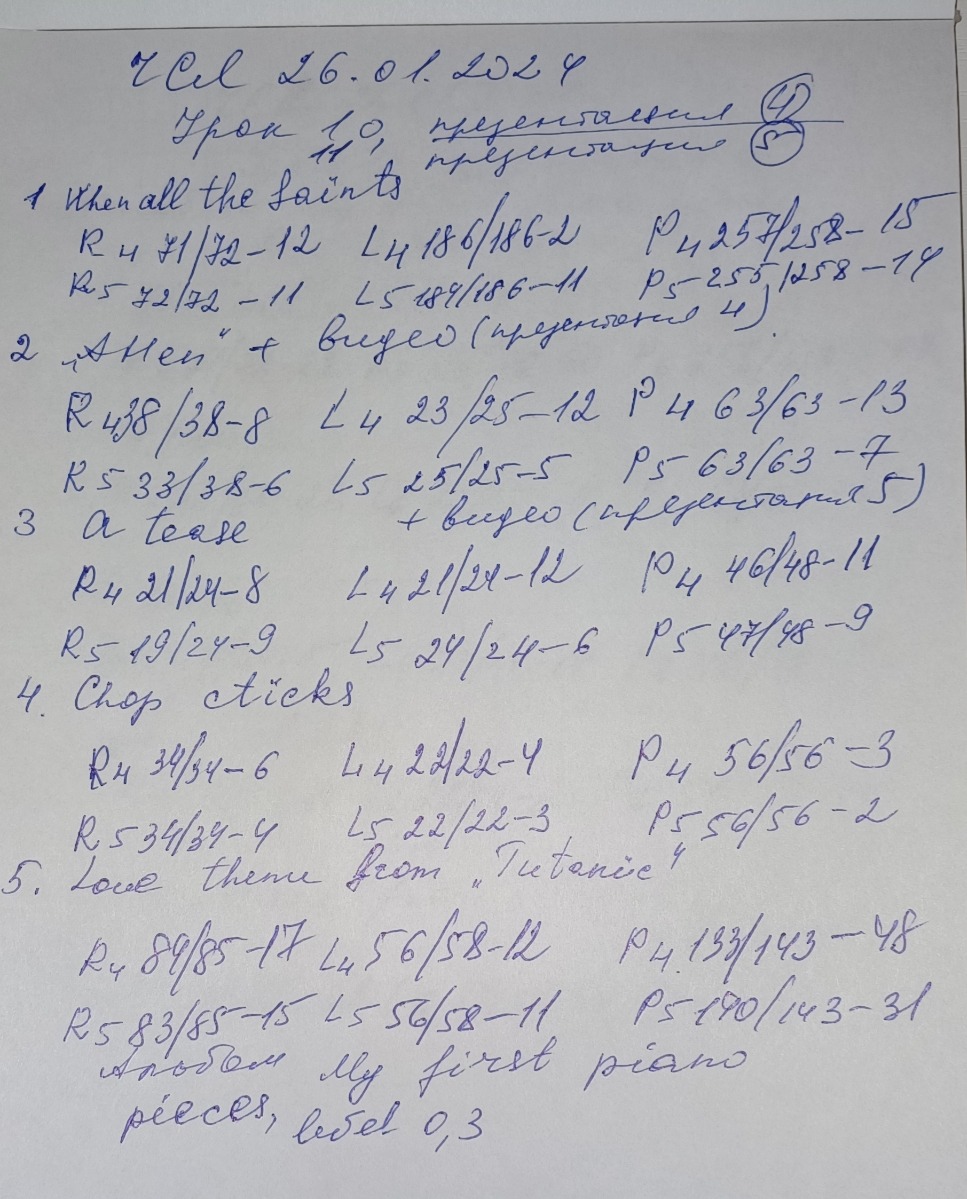 УСЛ 26.01.2024
Урок 10, презентация 4
11 презентация 5
1 When all the Saints
R4 71/72-12 L4 186/186-2 P4 257/258-15
R5 72/72-11 L5 184/186-11 P5-255/258-14
2 + видео (презентация 4)
R4 38/38-8 L4 23/25-12 P4 63/63-13
R5 33/38-6 L5 25/25-5 P5 63/63-7
3 A tease + видео (презентация 5)
R4 21/24-8 L4 21/24-12 P4 46/48-11
R5 19/24-9 L5 24/24-6 P5 47/48-9
4. Chop cticks
R4 34/34-6 L4 22/22-4 P4 56/56-3
R5 34/34-4 L5 22/22-3 P5 56/56-2
5. Love theme from „Tutanic"
R4 84/85-17 L4 56/58-12 P4 133/143-48
R5 83/85-15 L5 56/58-11 P5 140/143-31
Альбом My first piano
pieces, level 0,3